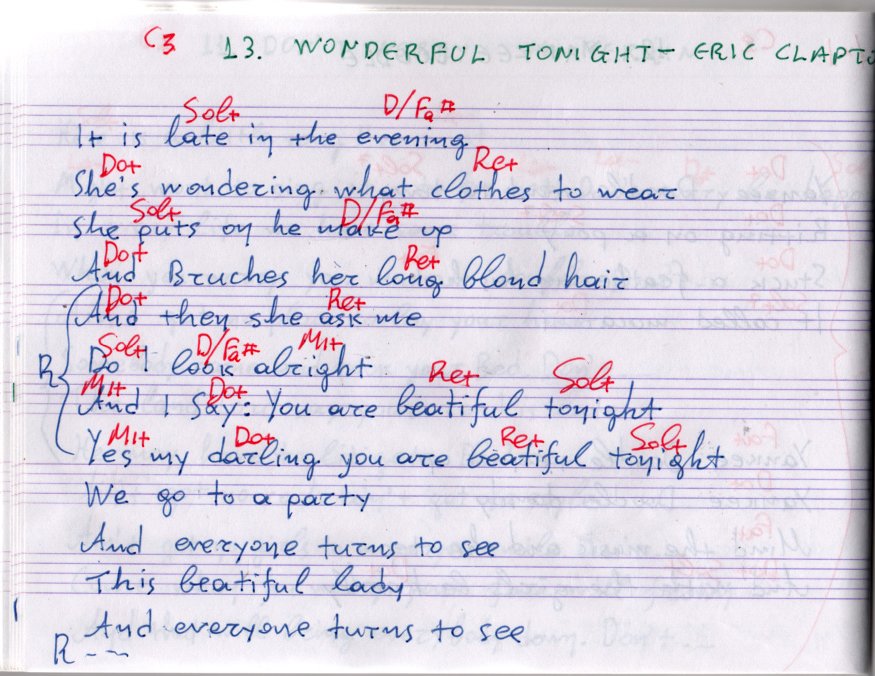 C3 13. WONDERFUL TONIGHT - ERIC CLAPTO
Sol+ D/Fa#
It is late in the evening
Do+ Re+
She's wondering what clothes to wear
Sol+ D/Fa#
She puts on he make up
Do+ Re+
And Bruches her long blond hair
Do+ Re+
And then she ask me
Sol+ D/Fa# Mi+
R Do I look alright
Mi+ Do+ Re+ Sol+
And I Say: You are beatiful tonight
Mi+ Do+ Re+ Sol+
Yes my darling you are beatiful tonight
We go to a party
And everyone turns to see
This beatiful lady
And everyone turns to see
R ---